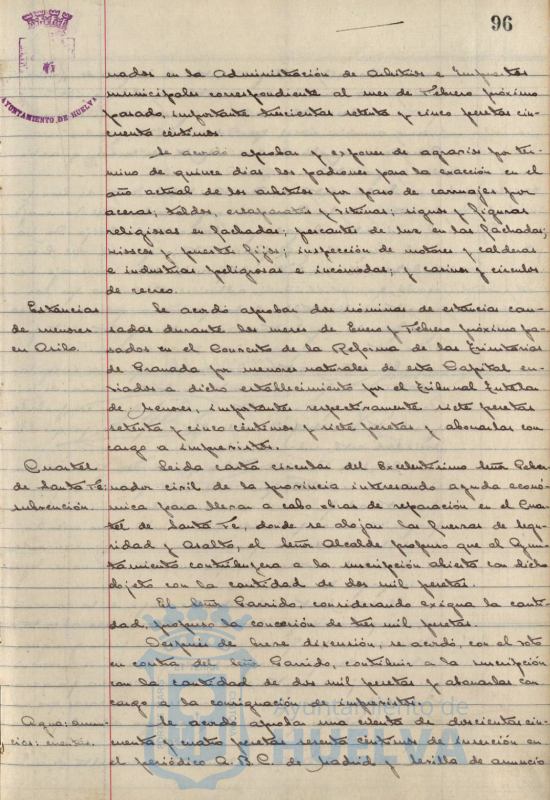 96
AYUNTAMIENTO DE HUELVA
nados en la Administración de Arbitrios e Impuestos
municipales correspondiente al mes de Febrero próximo
pasado, importante trescientas setenta y cinco pesetas cin-
cuenta céntimos
Se acordó aprobar y exponer de agravios por tér-
mino de quince días los padrones para la exacción en el
año actual de los arbitrios por paso de carruajes por
aceras; toldos, escaparates y vitrinas; signos y figuras
religiosas en fachadas; pescantes de luz en las fachadas;
kioscos y puestos fijos; inspección de motores y calderas
e industrias peligrosas e incómodas; y casinos y círculos
de recreo.
Estancias
de menores
en Asilo.
Se acordó aprobar dos nóminas de estancias cau-
sadas durante los meses de Enero y Febrero próximo pa-
sados en el Convento de la Reforma de las Trinitarias
de Granada por menores naturales de esta Capital en-
viados a dicho establecimiento por el Tribunal Tutelar
de Menores, importantes respectivamente siete pesetas
setenta y cinco céntimos y siete pesetas y abonarlas con
cargo a imprevistos.
Cuartel
de Santa Fé:
subvención.
Leida carta circular del Excelentísimo Señor Gober-
nador civil de la provincia interesando ayuda econó-
mica para llevar a cabo obras de reparación en el Cuar-
tel de Santa Fe, donde se alojan las fuerzas de Segu-
ridad y Asalto, el Señor Alcalde propuso que el Ayun-
tamiento contribuyera a la suscripción abierta con dicho
objeto con la cantidad de dos mil pesetas.
El Señor Garrido, considerando exigua la canti-
dad, propuso la concesión de tres mil pesetas.
Después de breve discusión, se acordó, con el voto
en contra del Señor Garrido, contribuir a la suscripción
con la cantidad de dos mil pesetas y abonarlas con
cargo a la consignación de imprevistos.
Agua: anun-
cios: cuentas.
Se acordó aprobar una cuenta de doscientas cin-
cuenta y cuatro pesetas sesenta céntimos de inserción en
el periódico A.B.C. de Madrid y Sevilla de anuncio
Ayuntamiento de
HUELVA